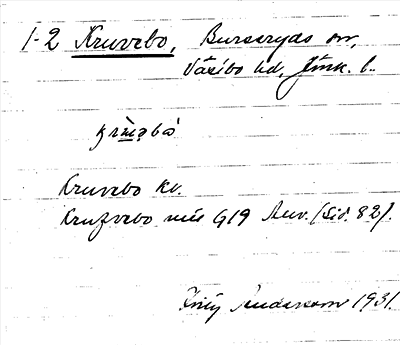 1-2 Kruvebo, Burseryds sn,
Västbo hd, Jönk. l.
Kruvebo kv.
Kruzvebo mis G19 Anv. (Sid. 82).
Andersson 1931.